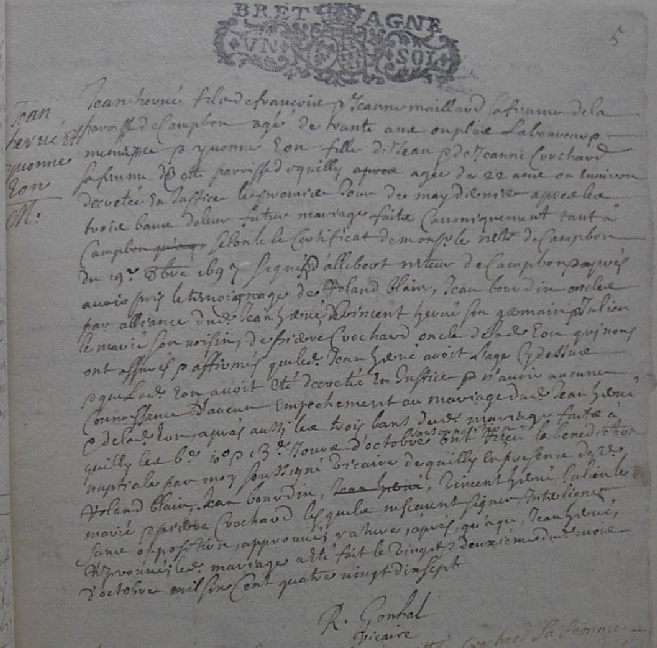 BRETAGNE
UN SOL
5
Jean
hervé et
yvonne
Eon
M.
Jean hervé fils de françois p Jeanne maillard sa femme de la
paroisse de Campbon agé de trante ans ou plus Laboureur p
p yvonne Eon fille de Jean p de Jeanne Crochard
sa femme de cette paroisse de quilly agée de 22 ans ou environ
decretée En Justice le Jour de may dernier apres les
trois bans de leur futur mariage faits Canoniquement tant à
Campbon selon le Certificat de monsr le rectr de Campbon
du 19e 8bre 1697 signé d'allebert recteur de Campbon p apres
avoir pris le temoignage de Roland Blain, Jean bourdin oncle
par alliance dud. Jean hervé, de vincent hervé son germain p Julien
le marié son voisin, de pierre Crochard oncle de lad. Eon qui nous
ont assurés p affirmés que led. Jean hervé avoit l'age Cy dessus
p que lad. Eon avoit Eté decretée En Justice p n'avoir aucune
Connoissance d'aucun Empechement au mariage dud. Jean hervé
p de lad. Eon, apres aussi les trois bans dud. mariage faits à
quilly les 6e 10e p 13e Jours d'octobre sans opposition ont reçu la benediction
nuptiale par moy soussigné vicaire de quilly En presence desd.
Roland Blain, Jean bourdin, Jean hervé, vincent hervé Julien le
marié p pierre Crochard lesquels ne scavent signer Interligne
sans opposition, approuvés ratures, apres, quiaqe, Jean hervé,
led. mariage a eté fait le vingt p deuxieme dud. mois
d'octobre mil six Cent quatre vingt dix sept
R. Gonhal
vicaire
Crochard sa femme